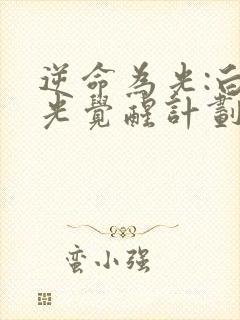 逆命為光:白
光覺醒計劃
蛮小强